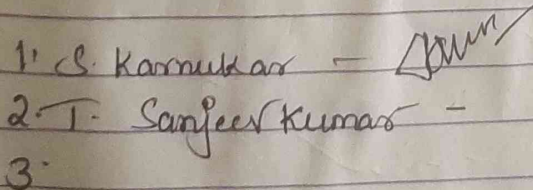 1. S. Karnukar -
2. T. Sanjeev Kumar -
3.